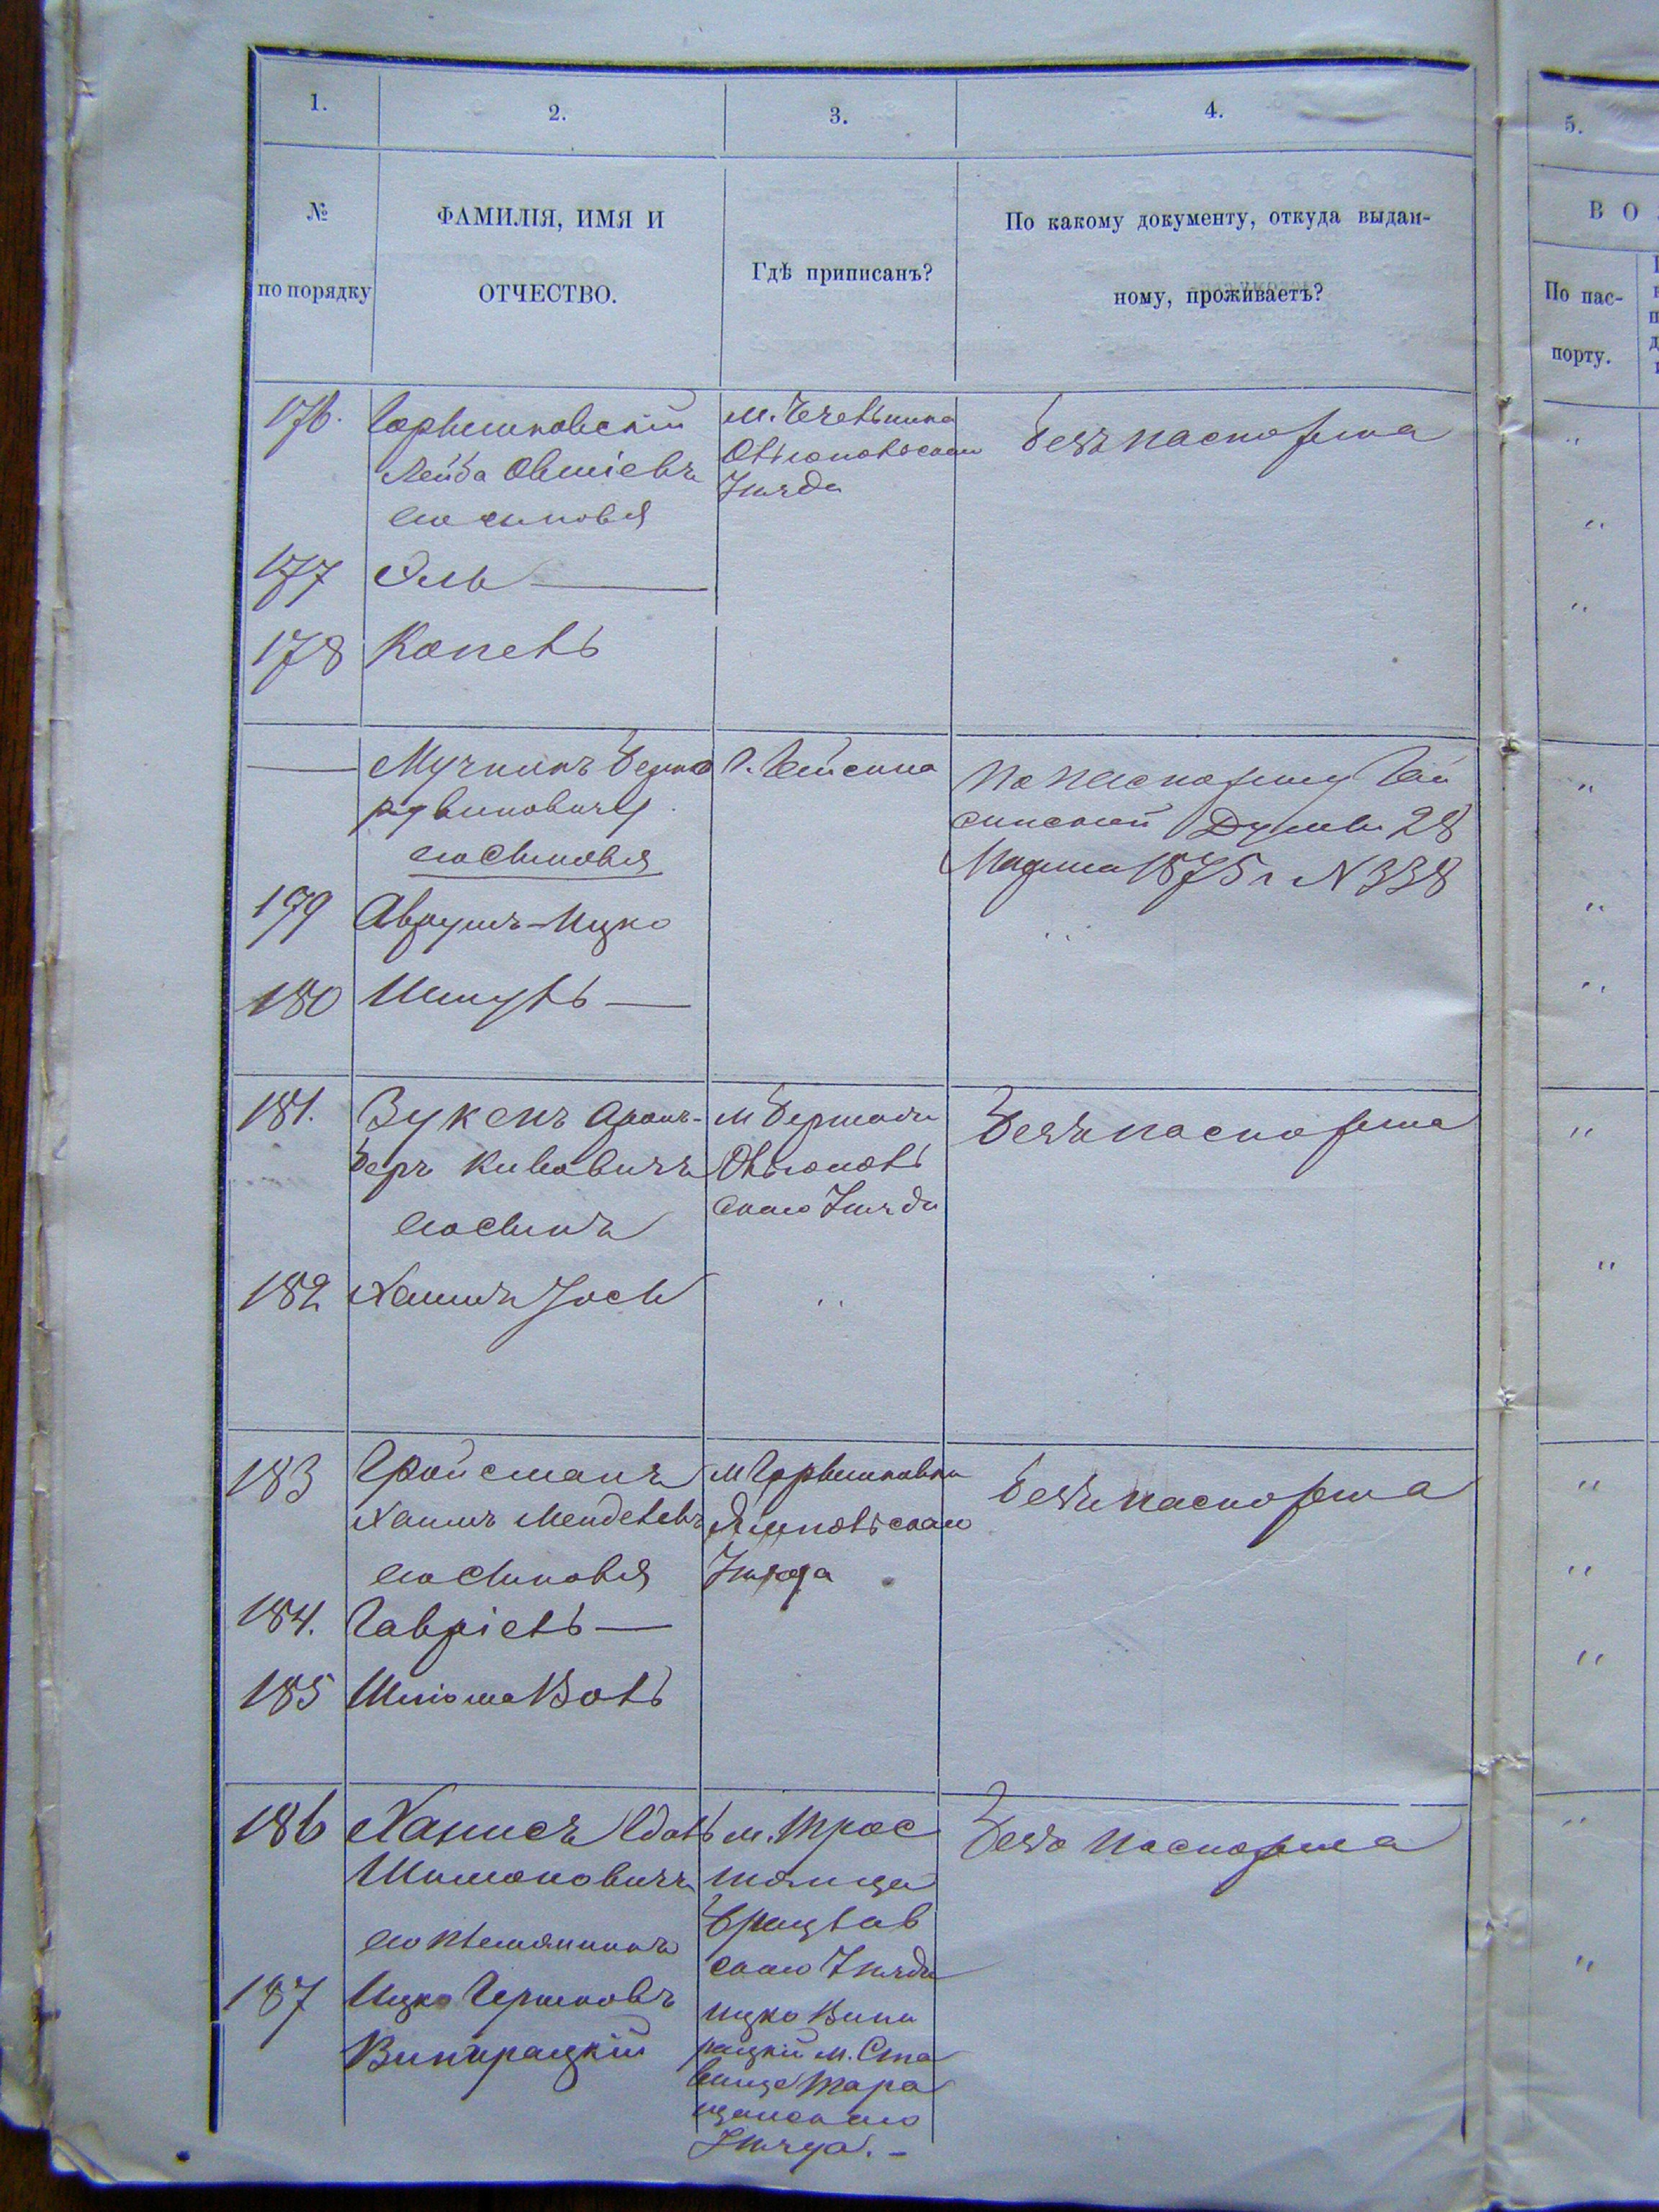 1.
2.
3.
4.
5.
№
по порядку
ФАМИЛІЯ, ИМЯ И
ОТЧЕСТВО.
Гдѣ приписанъ?
По какому документу, откуда выдан-
ному, проживаетъ?
В О
По пас-
порту.
176.
Гарышковскій
Лейба Овшіевъ
его сыновья
м. Чечельника
Ольгопольскаго
уѣзда
Безъ паспорта
177
Эль
178
Копель
Мучникъ Берко
Рувиновичъ
его сыновья
г. Гайсина
По паспорту Гай
синской Думы 28
Марта 1875 г N 338
179
Аврумъ-Ицко
180
Шмуль
181.
Зукенъ Аронъ-
Беръ Кивовичъ
его сынъ
м Бершади
Ольгополь
скаго уѣзда
Безъ паспорта
182
Хаимъ Іось
183
Гройсманъ
Хаимъ Менделевъ
его сыновья
м Гарышковки
Ямпольскаго
уѣзда
Безъ паспорта
184.
Гавріель
185
Шліома Волъ
186
Шимоновичъ
его племянникъ
м. Трос
тянца
Брацлав
скаго уѣзда
Безъ паспорта
187
Ицко Гершковъ
Винирацкій
Ицко Вини
рацкій м. Ста
вище Тара
щанскаго
уѣзда. -